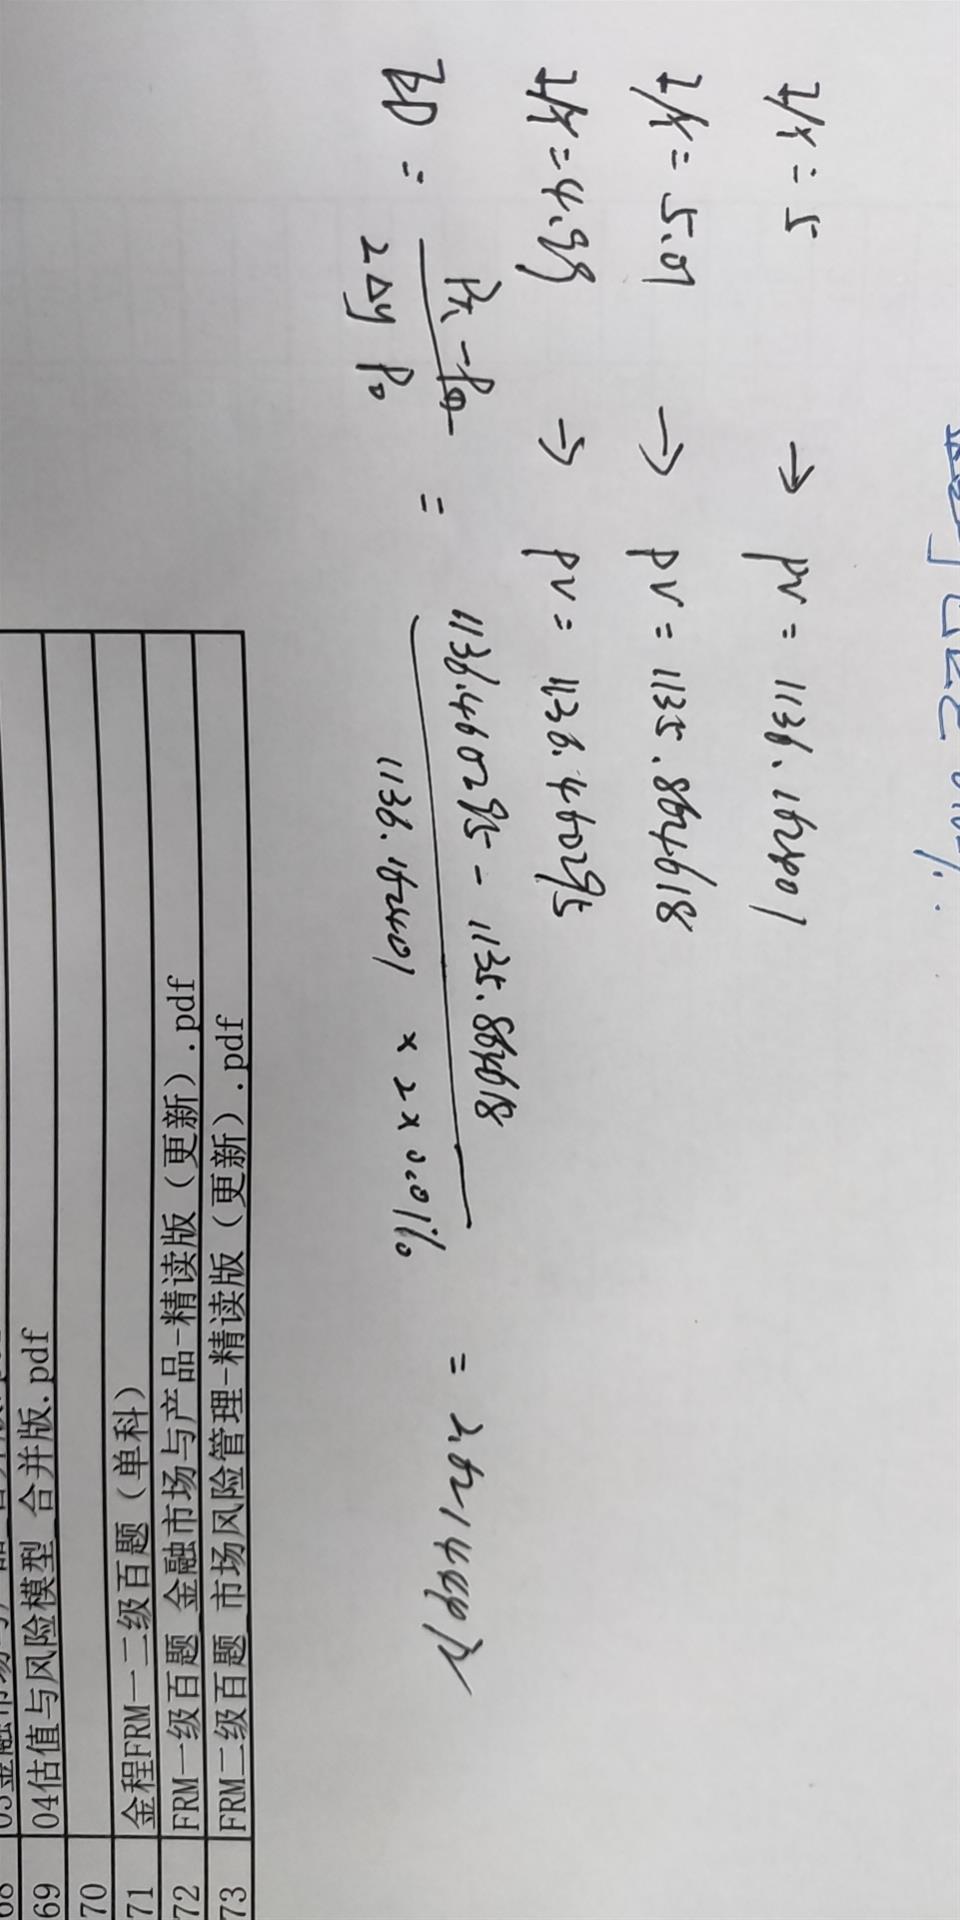 I/Y = 5 → PV = 1136.162401
I/Y = 5.01 → PV = 1135.864618
I/Y = 4.99 → PV = 1136.460295
= 1136.460295 - 1135.864618 = 2.621444
2Δy P₀ 1136.162401 × 2 × 0.01%
69 04估值与风险模型_合并版.pdf
70
71 金程FRM一二级百题(单科)
72 FRM一级百题_金融市场与产品-精读版(更新).pdf
73 FRM二级百题_市场风险管理-精读版(更新).pdf